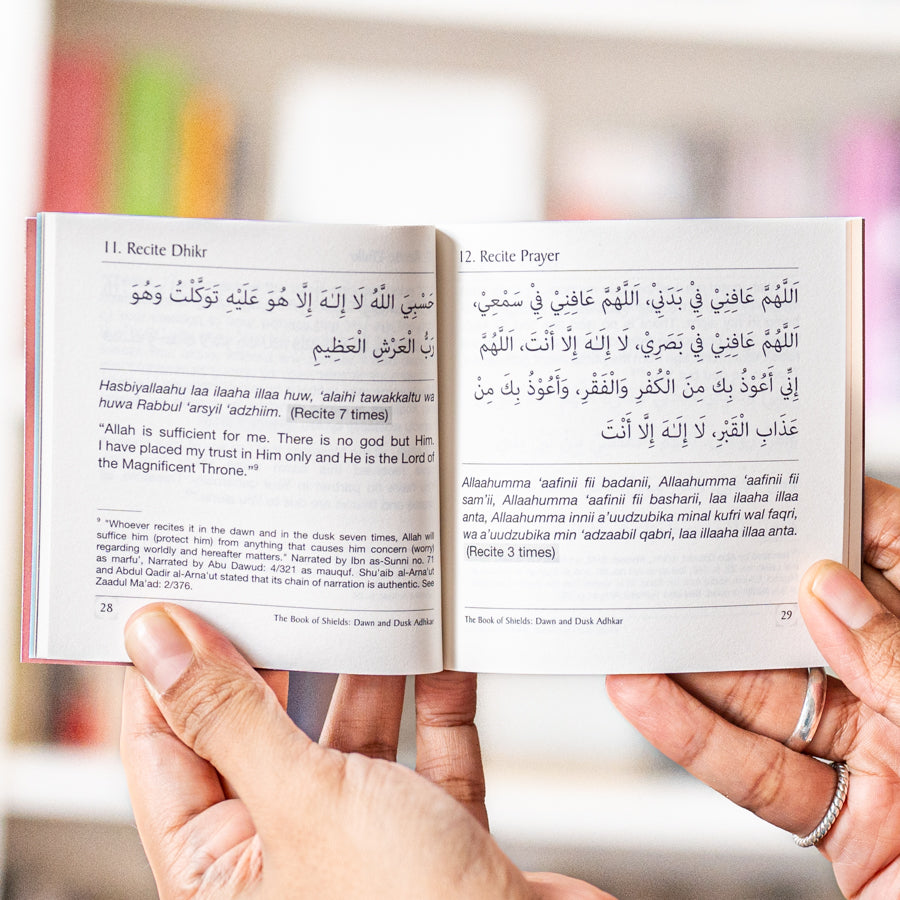 11. Recite Dhikr
حَسْبِيَ اللَّهُ لَا إِلَـٰهَ إِلَّا هُوَ عَلَيْهِ تَوَكَّلْتُ وَهُوَ
رَبُّ الْعَرْشِ الْعَظِيمِ
Hasbiyallaahu laa ilaaha illaa huw, ‘alaihi tawakkaltu wa
huwa Rabbul ‘arsyil ‘adzhiim. (Recite 7 times)
“Allah is sufficient for me. There is no god but Him.
I have placed my trust in Him only and He is the Lord of
the Magnificent Throne.”⁹
⁹ "Whoever recites it in the dawn and in the dusk seven times, Allah will
suffice him (protect him) from anything that causes him concern (worry)
regarding worldly and hereafter matters." Narrated by Ibn as-Sunni no. 71
as marfu’, Narrated by Abu Dawud: 4/321 as mauquf. Shu’aib al-Arna’ut
and Abdul Qadir al-Arna’ut stated that its chain of narration is authentic. See
Zaadul Ma’ad: 2/376.
28
The Book of Shields: Dawn and Dusk Adhkar
12. Recite Prayer
اَللَّهُمَّ عَافِنِيْ فِيْ بَدَنِيْ، اَللَّهُمَّ عَافِنِيْ فِيْ سَمْعِيْ،
اَللَّهُمَّ عَافِنِيْ فِيْ بَصَرِيْ، لَا إِلَـٰهَ إِلَّا أَنْتَ، اَللَّهُمَّ
إِنِّي أَعُوْذُ بِكَ مِنَ الْكُفْرِ وَالْفَقْرِ، وَأَعُوْذُ بِكَ مِنْ
عَذَابِ الْقَبْرِ، لَا إِلَـٰهَ إِلَّا أَنْتَ
Allaahumma ‘aafinii fii badanii, Allaahumma ‘aafinii fii
sam’ii, Allaahumma ‘aafinii fii basharii, laa ilaaha illaa
anta, Allaahumma innii a’uudzubika minal kufri wal faqri,
wa a’uudzubika min ‘adzaabil qabri, laa illaaha illaa anta.
(Recite 3 times)
The Book of Shields: Dawn and Dusk Adhkar
29